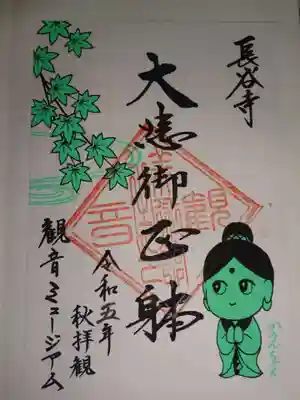 長谷寺
大悲御正躰
令和五年
秋拝観
観音ミュージアム